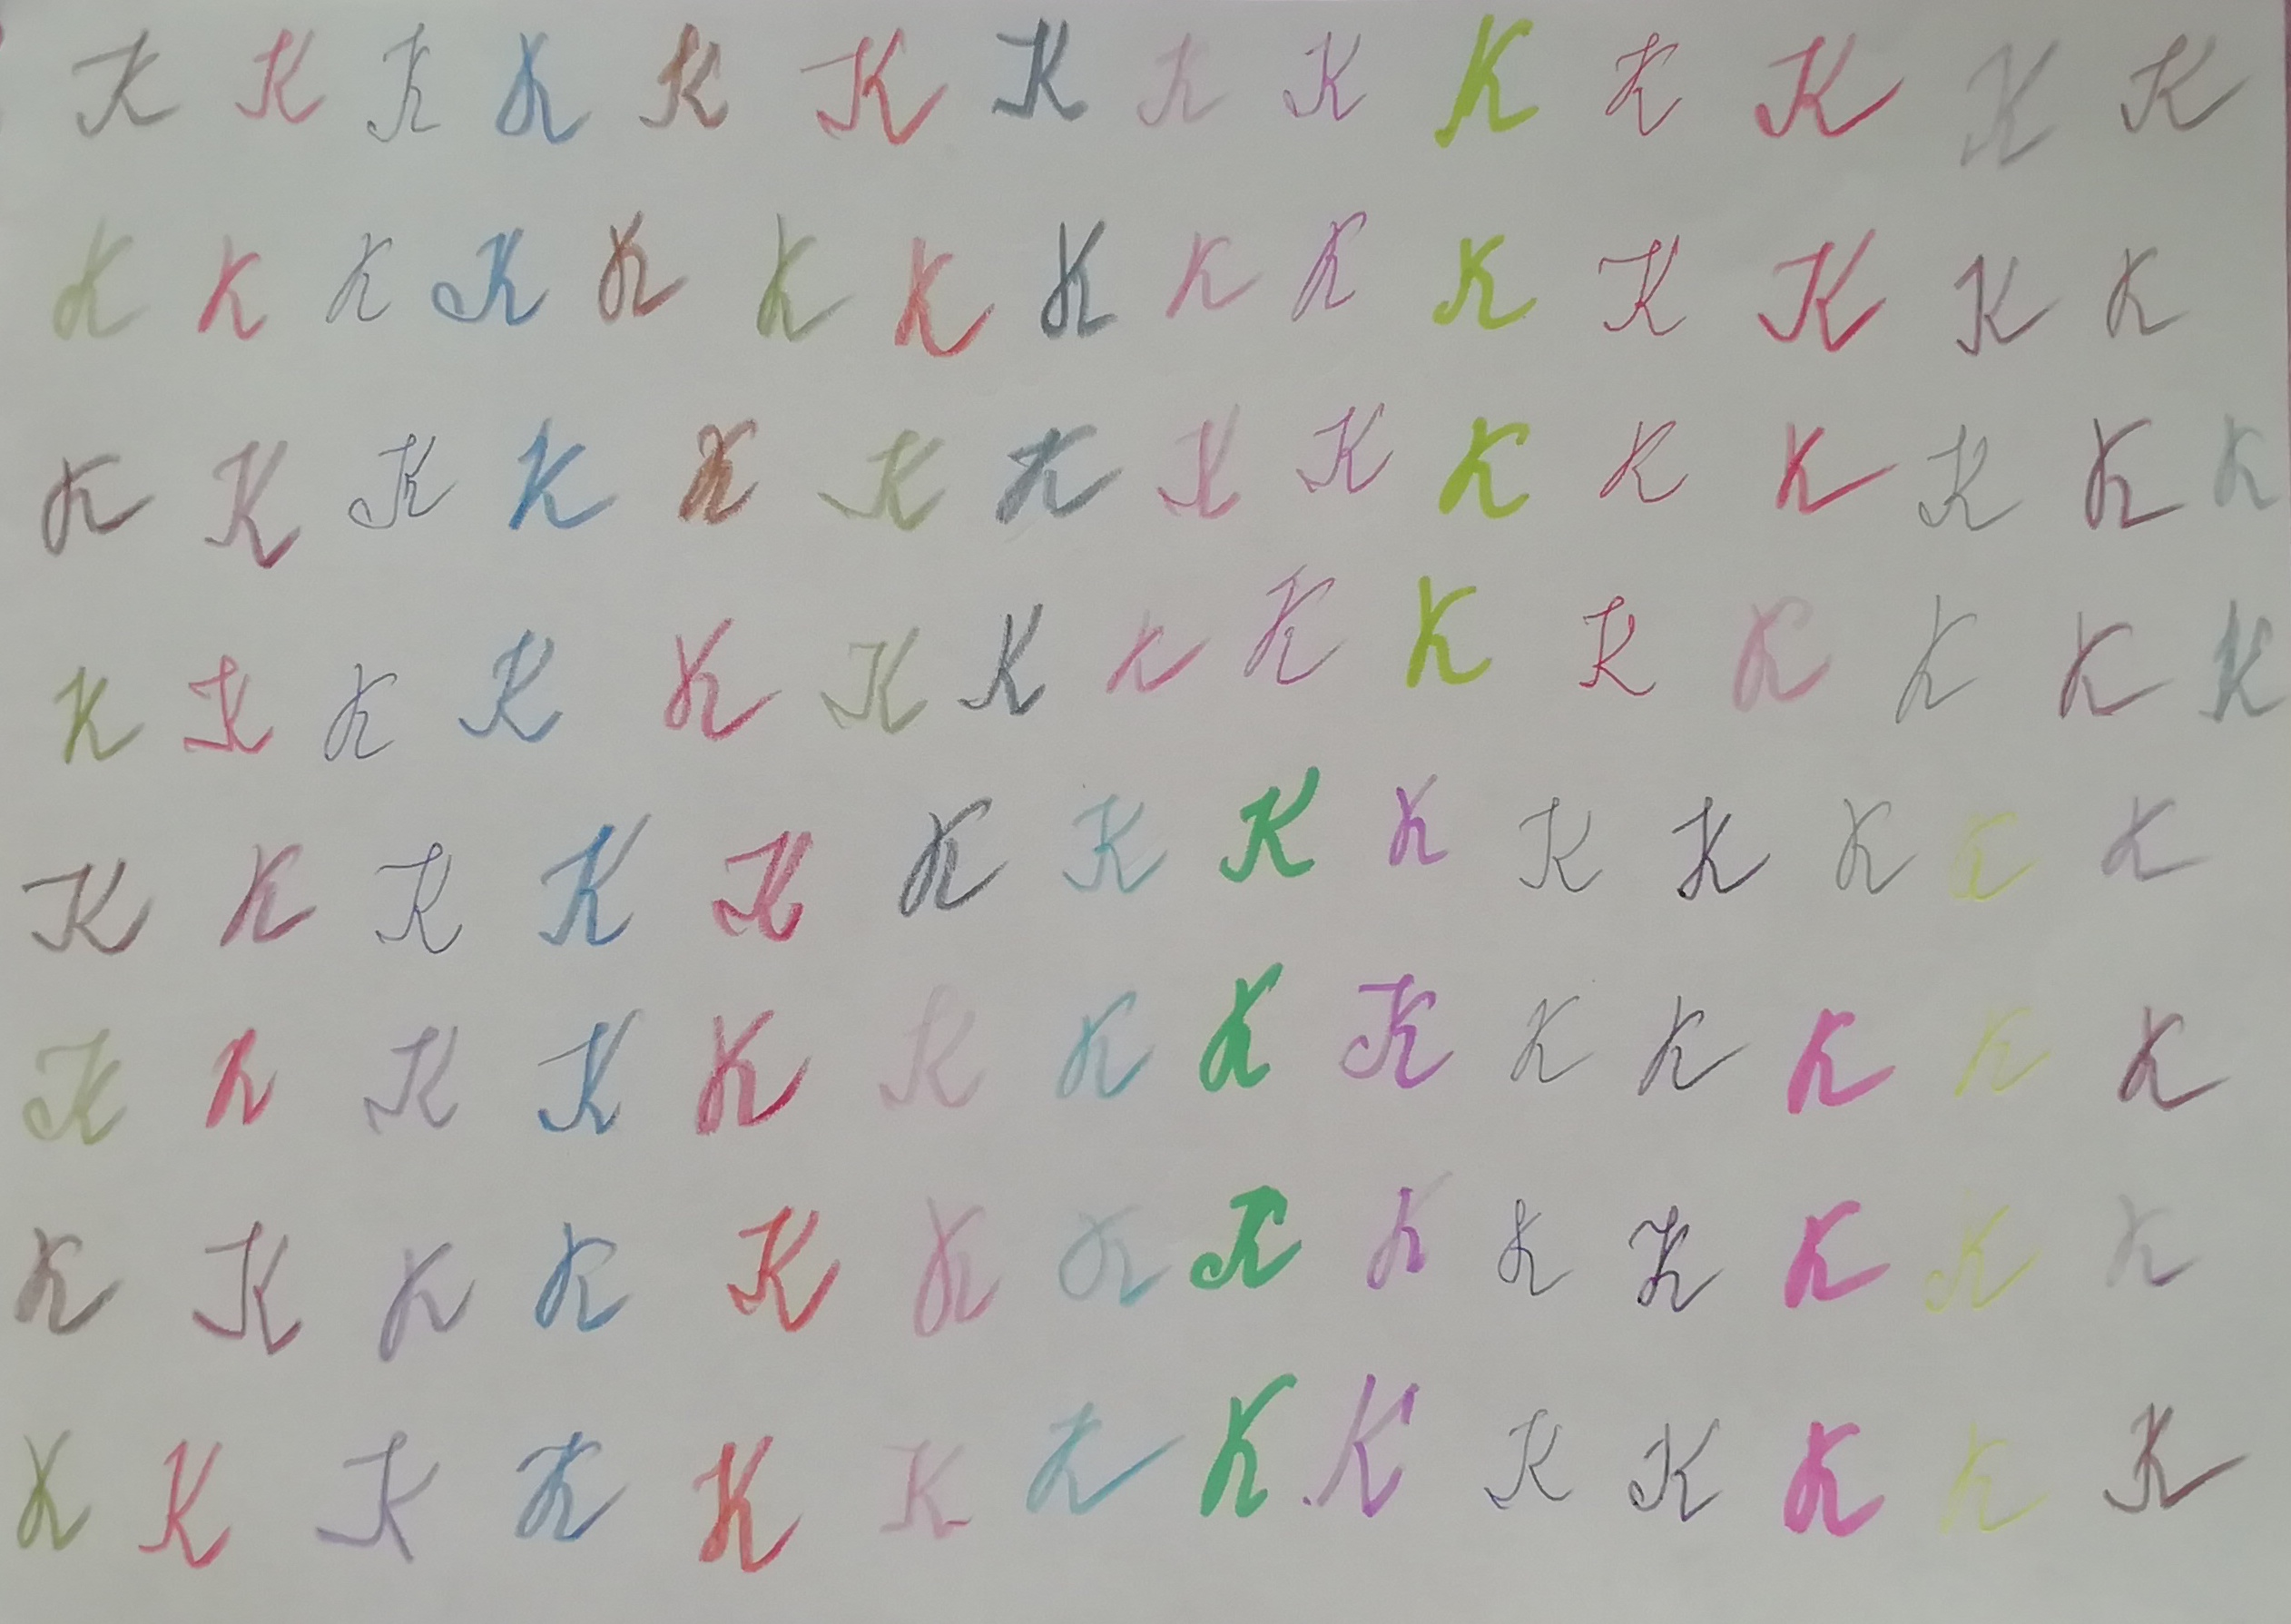 K K K K K K K K K K K K K K
K K K K K K K K K K K K K K K
K K K K K K K K K K K K K K K
K K K K K K K K K K K K K K K
K K K K K K K K K K K K K K
K K K K K K K K K K K K K K
K K K K K K K K K K K K K K
K K K K K K K K K K K K K K